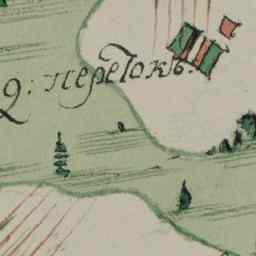 д: перетокъ: